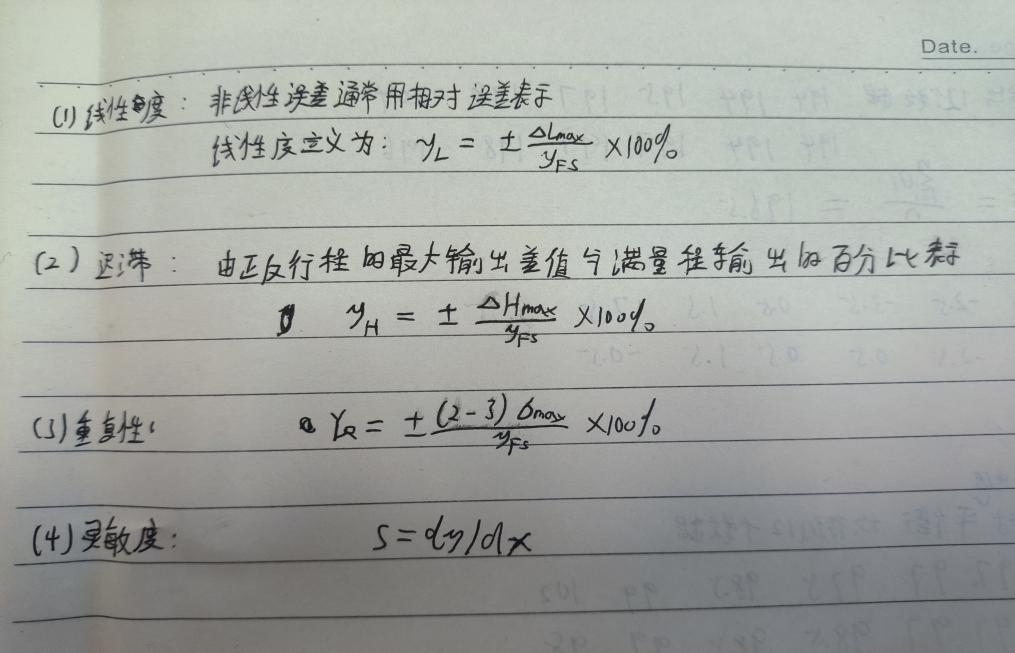 Date.
(1) 线性度: 非线性误差通常用相对误差表示
线性度定义为: y_L = ± ΔLmax / y_FS ×100%
(2) 迟滞: 由正反行程的最大输出差值与满量程输出的百分比表示
y_H = ± ΔHmax / y_FS ×100%
(3) 重复性: Y_R = ± (2-3) σmax / y_FS ×100%
(4) 灵敏度: S = dy/dx